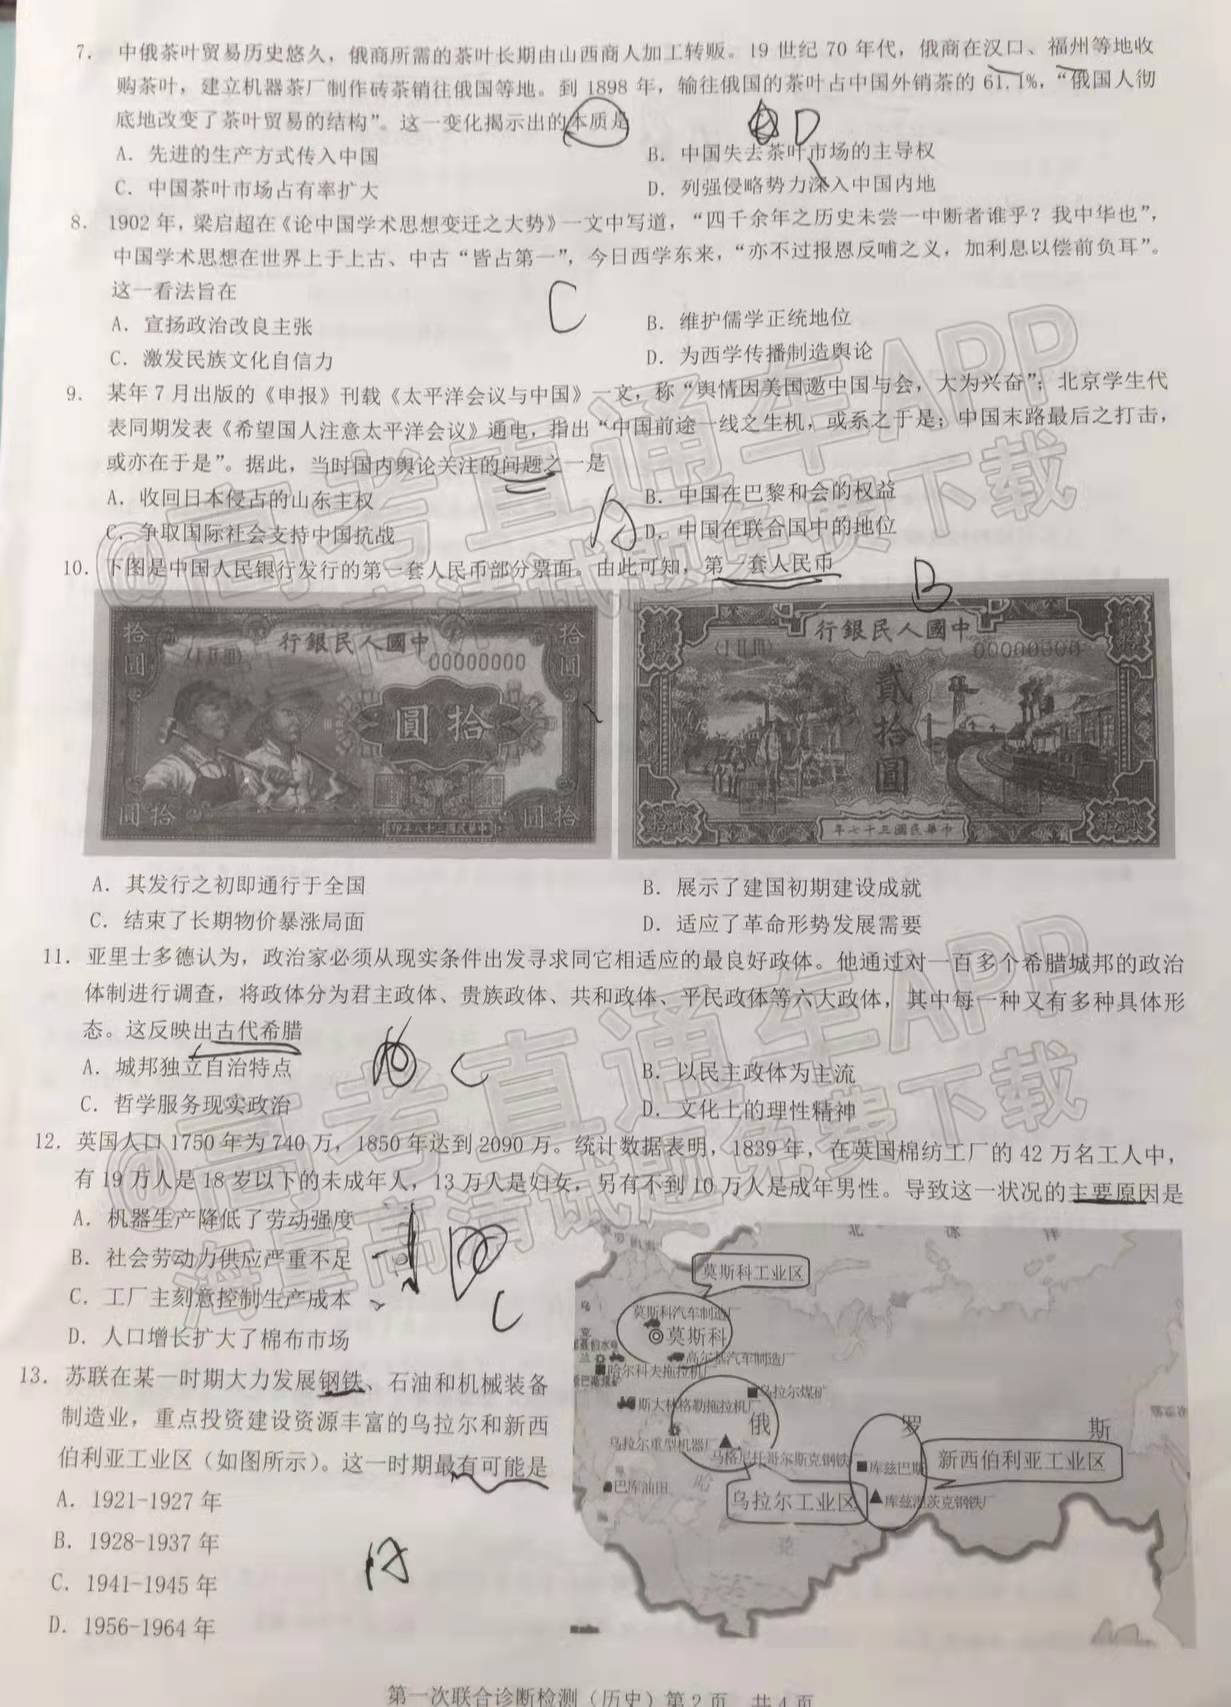 7. 中俄茶叶贸易历史悠久，俄商所需的茶叶长期由山西商人加工转贩。19 世纪 70 年代，俄商在汉口、福州等地收
购茶叶，建立机器茶厂制作砖茶销往俄国等地。到 1898 年，输往俄国的茶叶占中国外销茶的 61.1%，“俄国人彻
底地改变了茶叶贸易的结构”。这一变化揭示出的本质是
D
A. 先进的生产方式传入中国
B. 中国失去茶叶市场的主导权
C. 中国茶叶市场占有率扩大
D. 列强侵略势力深入中国内地
8. 1902 年，梁启超在《论中国学术思想变迁之大势》一文中写道，“四千余年之历史未尝一中断者谁乎？我中华也”，
中国学术思想在世界上于上古、中古“皆占第一”，今日西学东来，“亦不过报恩反哺之义，加利息以偿前负耳”。
这一看法旨在
C
A. 宣扬政治改良主张
B. 维护儒学正统地位
C. 激发民族文化自信力
D. 为西学传播制造舆论
9. 某年 7 月出版的《申报》刊载《太平洋会议与中国》一文，称“舆情因美国邀中国与会，大为兴奋”；北京学生代
表同期发表《希望国人注意太平洋会议》通电，指出“中国前途一线之生机，或系之于是；中国末路最后之打击，
或亦在于是”。据此，当时国内舆论关注的问题之一是
A. 收回日本侵占的山东主权
B. 中国在巴黎和会的权益
C. 争取国际社会支持中国抗战
D. 中国在联合国中的地位
A
10. 下图是中国人民银行发行的第一套人民币部分票面。由此可知，第一套人民币
B
行銀民人國中
〈I II III〉
00000000
拾圓
拾圓
圓拾
圓拾
圓拾
印年八十三國民華中
行銀民人國中
〈I II III〉
00000000
貳拾圓
年七十三國民華中
A. 其发行之初即通行于全国
B. 展示了建国初期建设成就
C. 结束了长期物价暴涨局面
D. 适应了革命形势发展需要
11. 亚里士多德认为，政治家必须从现实条件出发寻求同它相适应的最良好政体。他通过对一百多个希腊城邦的政治
体制进行调查，将政体分为君主政体、贵族政体、共和政体、平民政体等六大政体，其中每一种又有多种具体形
态。这反映出古代希腊
C
A. 城邦独立自治特点
B. 以民主政体为主流
C. 哲学服务现实政治
D. 文化上的理性精神
12. 英国人口 1750 年为 740 万，1850 年达到 2090 万。统计数据表明，1839 年，在英国棉纺工厂的 42 万名工人中，
有 19 万人是 18 岁以下的未成年人，13 万人是妇女，另有不到 10 万人是成年男性。导致这一状况的主要原因是
A. 机器生产降低了劳动强度
B. 社会劳动力供应严重不足
C. 工厂主刻意控制生产成本
D. 人口增长扩大了棉布市场
C
13. 苏联在某一时期大力发展钢铁、石油和机械装备
制造业，重点投资建设资源丰富的乌拉尔和新西
伯利亚工业区（如图所示）。这一时期最有可能是
A. 1921-1927 年
B. 1928-1937 年
C. 1941-1945 年
D. 1956-1964 年
北 冰 洋
莫斯科工业区
莫斯科汽车制造厂
莫斯科
高尔基汽车制造厂
哈尔科夫拖拉机厂
乌拉尔煤矿
斯大林格勒拖拉机厂
俄 罗 斯
乌拉尔重型机器厂
马格尼托哥尔斯克钢铁厂
库兹巴斯
新西伯利亚工业区
巴库油田
哈
乌拉尔工业区
库兹涅茨克钢铁厂
第一次联合诊断检测（历史）第 2 页 共 4 页
@高考直通车APP
海量高清试题免费下载
@高考直通车APP
海量高清试题免费下载